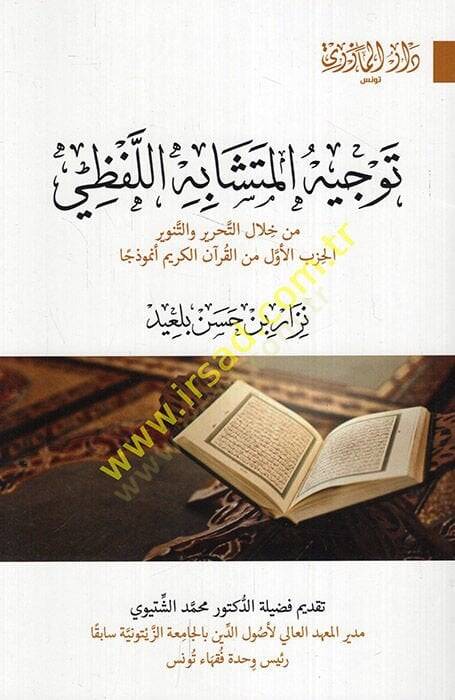 دار المازري
تونس
تَوْجِيهُ المُتَشَابِهِ اللَّفْظِيِّ
من خلال التَّحرير والتَّنوير
الحِزب الأوَّل من القُرآن الكريم أنموذجًا
نِزَار بن حَسَن بلعِيد
www.irsad.com.tr
تقديم فضيلة الدُّكتور محمَّد الشِّتيوي
مدير المعهد العالي لأصُول الدِّين بالجامعة الزَّيتونيَّة سابقًا
رئيس وحدة فُقهَاء تُونس